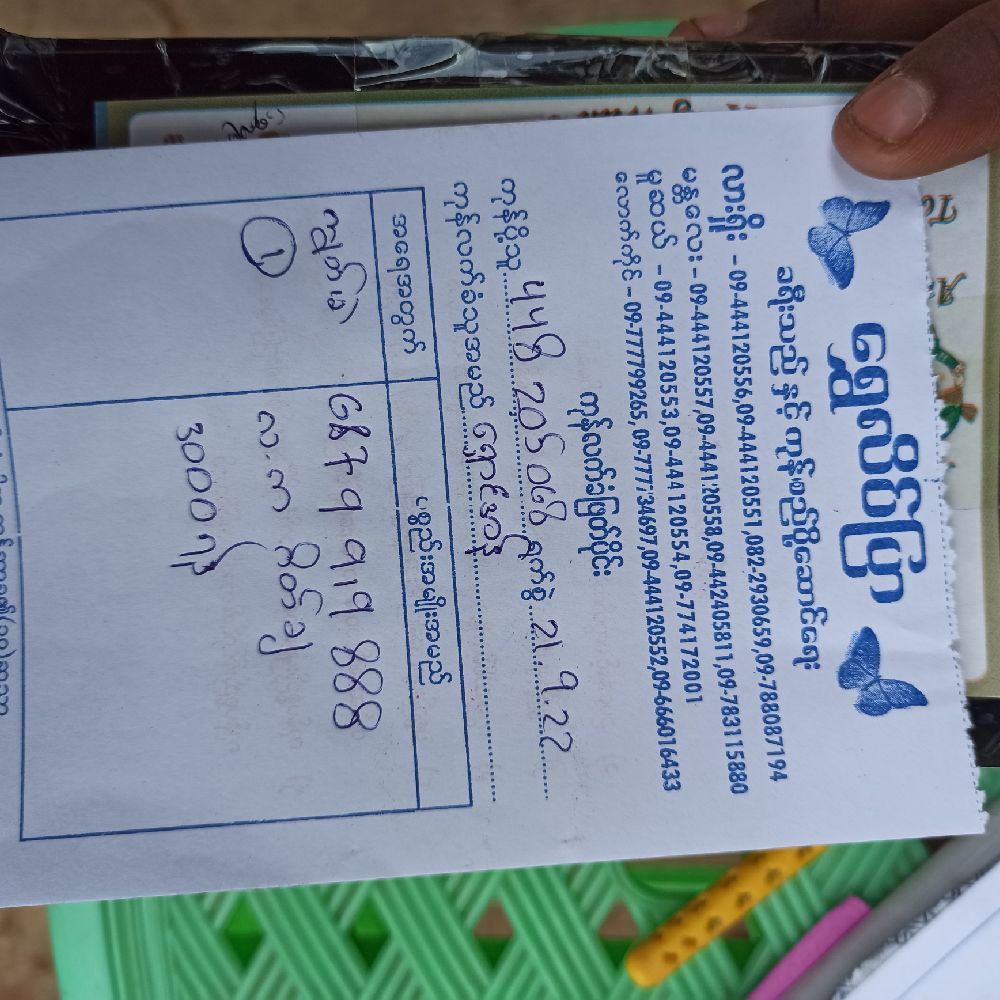 ရွှေလိပ်ပြာ
ခရီးသည် နှင့် ကုန်စည်ပို့ဆောင်ရေး
လားရှိုး - 09-444120556,09-444120551,082-2930659,09-788087194
မန္တလေး - 09-444120557,09-444120558,09-442405811,09-783115880
မူဆယ် - 09-444120553,09-444120554,09-774172001
လောက်ကိုင် - 09-777799265,09-777734697,09-444120552,09-666016433
ကုန်လက်ခံဖြတ်ပိုင်း
ကုန်ပို့သူ 448 205068 ရက်စွဲ 21.9.22
ကုန်လက်ခံသူအမည်
အရေအတွက် ပစ္စည်းအမျိုးအမည်
ကျွတ်ဖာ 6879 919 888
1 လ.က စိုက်ချ
3000 ကျ